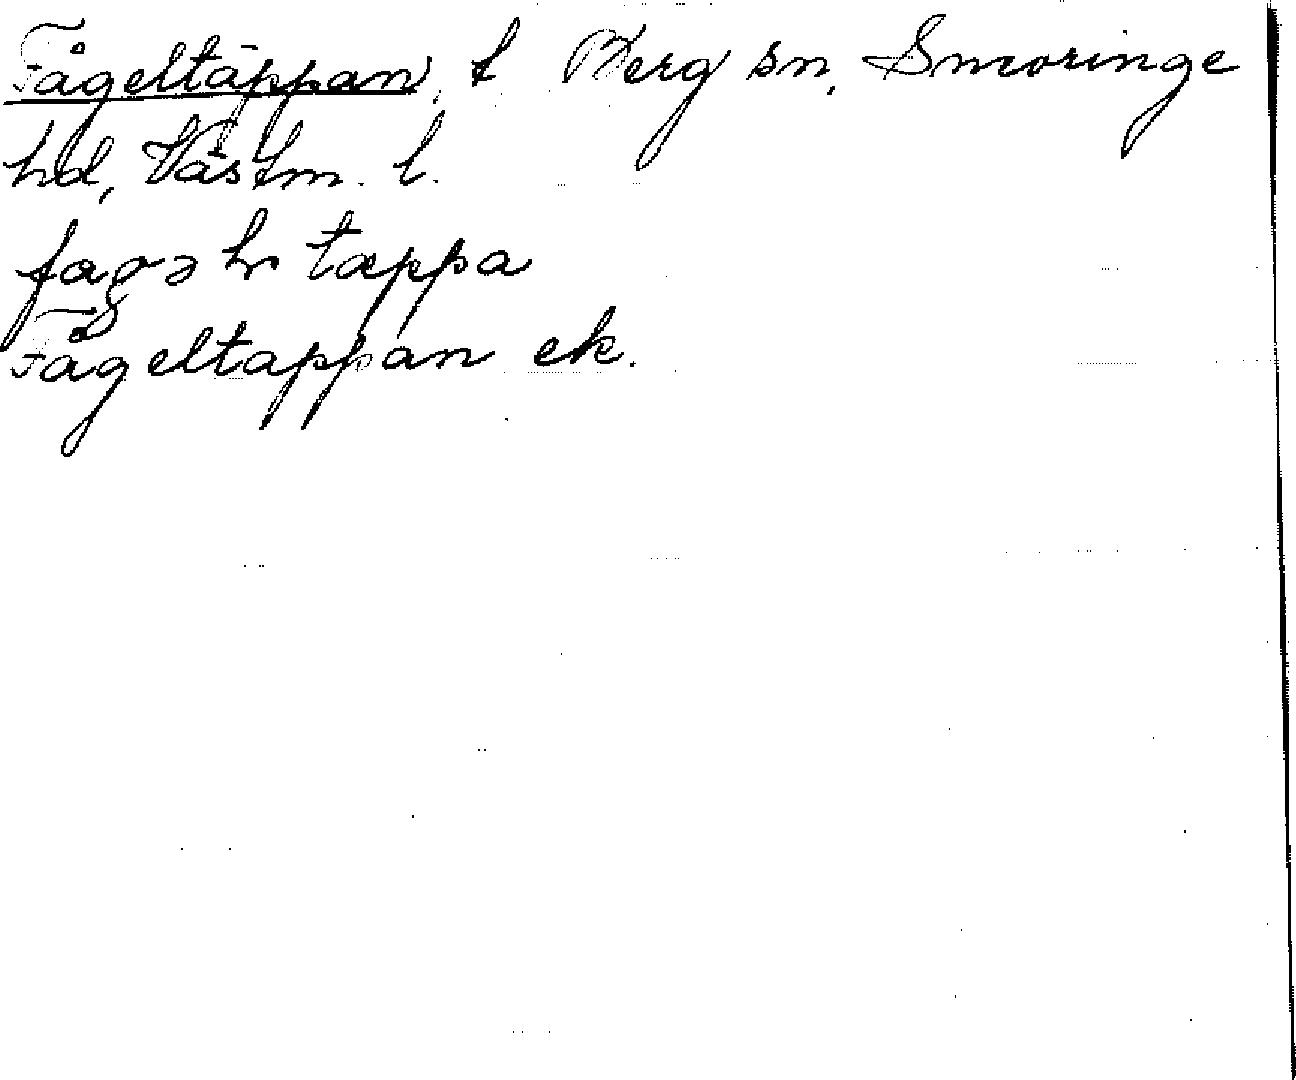 Fågeltäppan, t Berg sn, Snevringe
hd, Västm. l.
täppa
Fågeltäppan ek.